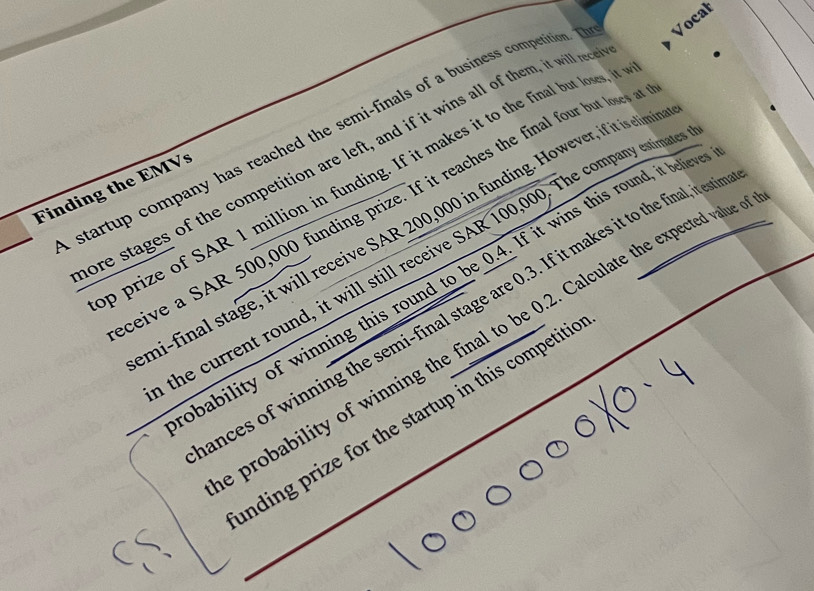 Vocab
Finding the EMVs
A startup company has reached the semi-finals of a business competition. Thre
more stages of the competition are left, and if it wins all of them, it will receive
top prize of SAR 1 million in funding. If it makes it to the final but loses, it wil
receive a SAR 500,000 funding prize. If it reaches the final four but loses at the
semi-final stage, it will receive SAR 200,000 in funding. However, if it is eliminated
in the current round, it will still receive SAR 100,000. The company estimates the
probability of winning this round to be 0.4. If it wins this round, it believes it
chances of winning the semi-final stage are 0.3. If it makes it to the final, it estimate
the probability of winning the final to be 0.2. Calculate the expected value of the
funding prize for the startup in this competition.
1000000X0.4